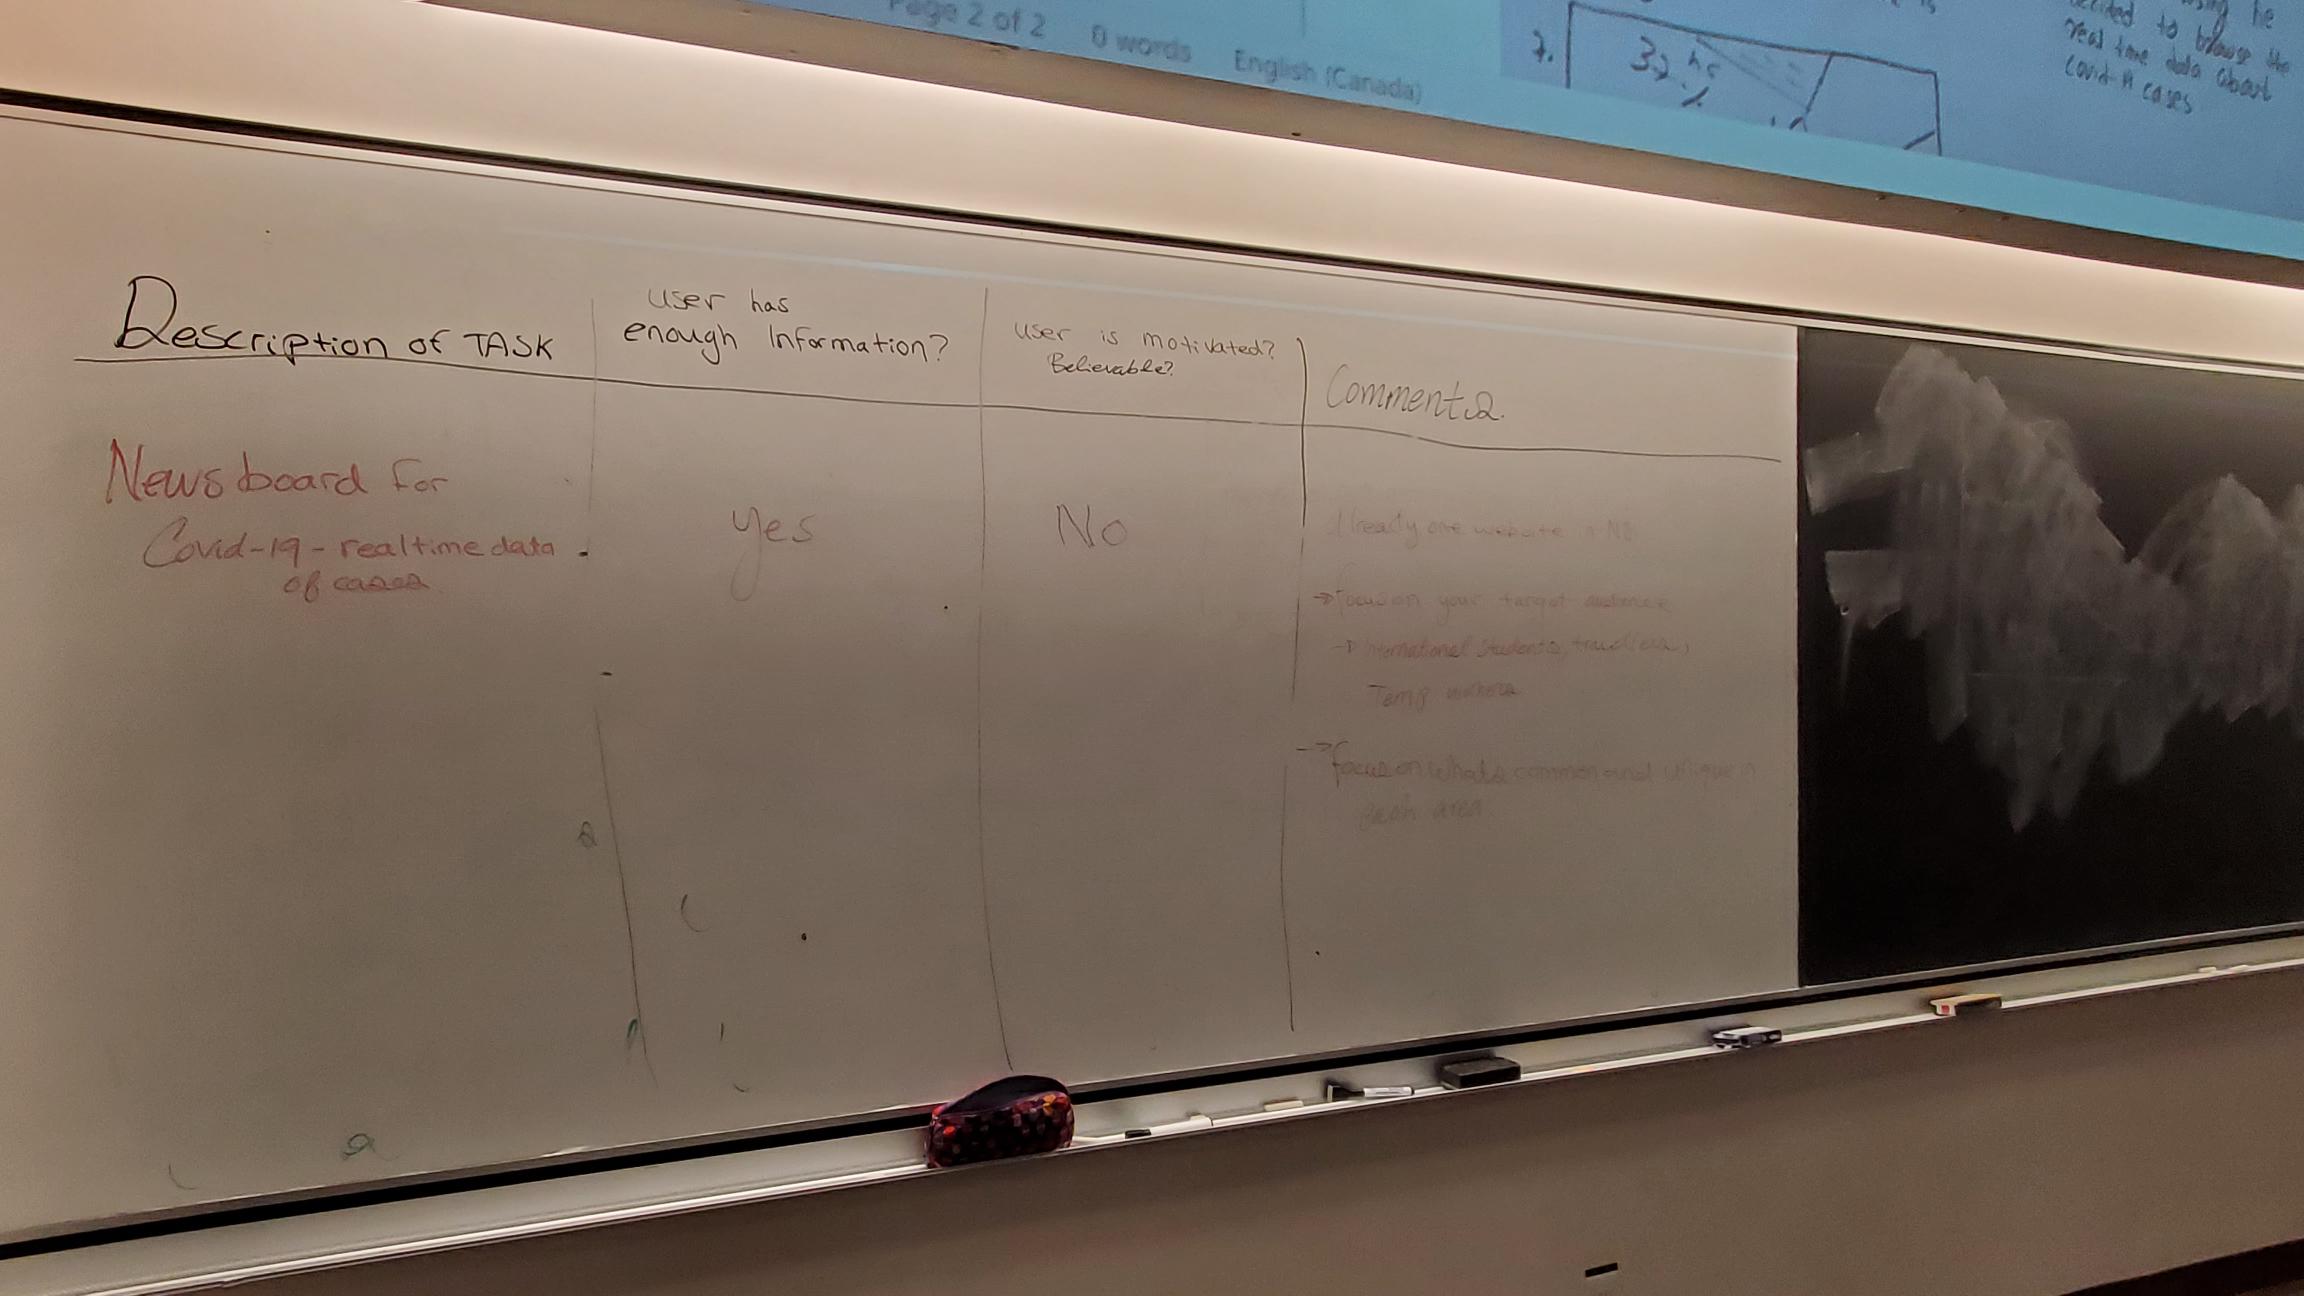 Page 2 of 2 0 words English (Canada)
7.
to browse the
real time data about
covid-19 cases
Description of TASK
user has
enough Information?
user is motivated?
Believable?
Comments.
News board for
Covid-19 - realtime data
of cases
yes
No
Already one website NB
→ focus on your target audience
→ International Students, travellers,
Temp workers
→ focus on what's common and unique in
each area